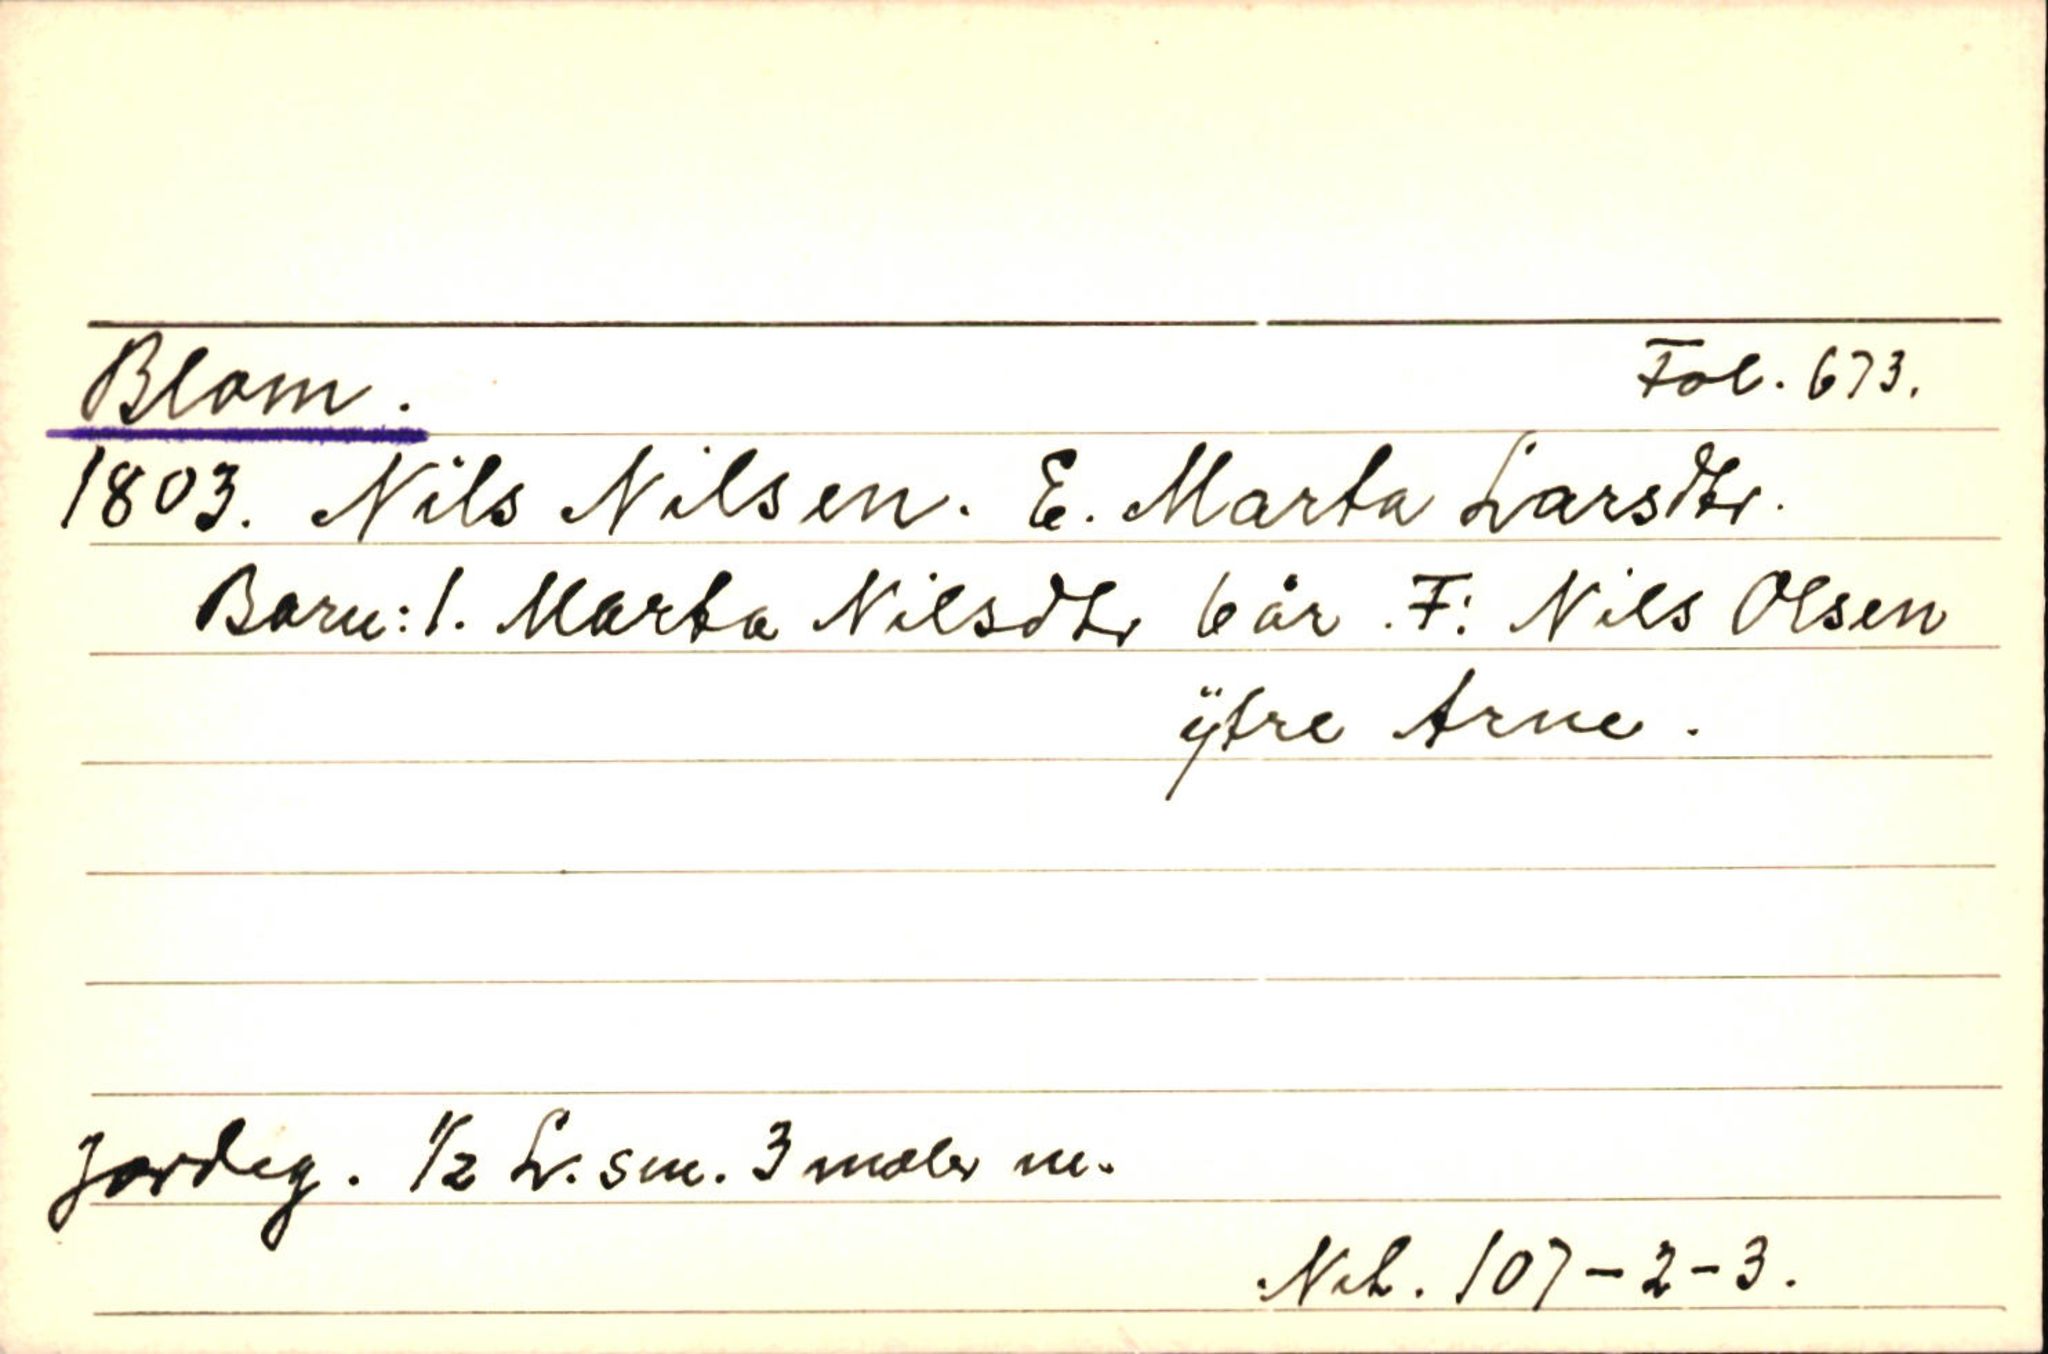 Blom. Fol. 673.
1803. Nils Nilsen. E. Marta Larsdtr.
Born: 1. Marta Nilsdtr 6 år. F: Nils Olsen
ÿtre Arne.
Jordeg. 1/2 L. sm. 3 mæler m.
107-2-3.